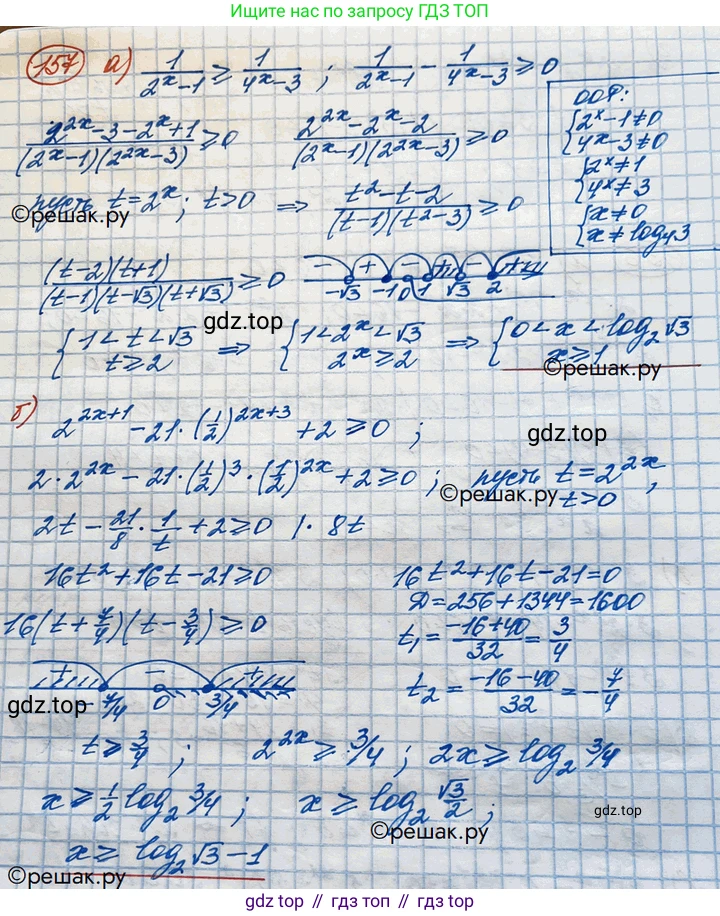 Ищите ответы по запросу ГДЗ ТОП
157 а) 1/(2^x−1) ⩾ 1/(4^x−3) ; 1/(2^x−1) − 1/(4^x−3) ⩾ 0
ООФ:
{2^x−1≠0
{4^x−3≠0
{2^x≠1
{4^x≠3
{x≠0
{x≠log_4 3
(2^(2x)−3−2^x+1)/((2^x−1)(2^(2x)−3)) ⩾ 0 (2^(2x)−2^x−2)/((2^x−1)(2^(2x)−3)) ⩾ 0
пусть t=2^x; t>0 ⇒ (t^2−t−2)/((t−1)(t^2−3)) ⩾ 0
©решак.ру
((t−2)(t+1))/((t−1)(t−√3)(t+√3)) ⩾ 0 − + − + − + −√3 −1 0 1 √3 2
gdz.top
{1<t<√3 ⇒ {1<2^x<√3 ⇒ {0<x<log_2 √3
{t⩾2 {2^x⩾2 {x⩾1
©решак.ру
б) 2^(2x+1) − 21·(1/2)^(2x+3) + 2 ⩾ 0 ;
gdz.top
2·2^(2x) − 21·(1/2)^3·(1/2)^(2x) + 2 ⩾ 0 ; пусть t=2^(2x), t>0
©решак.ру
2t − 21/8 · 1/t + 2 ⩾ 0 |· 8t
16t^2+16t−21⩾0 16t^2+16t−21=0
D=256+1344=1600
16(t+7/4)(t−3/4)⩾0 t_1 = (−16+40)/32 = 3/4
+ − + −7/4 0 3/4 t_2 = (−16−40)/32 = −7/4
gdz.top
t⩾3/4 ; 2^(2x)⩾3/4 ; 2x⩾log_2 3/4
x⩾1/2 log_2 3/4 ; x⩾log_2 √3/2 ;
gdz.top
©решак.ру
x⩾log_2 √3−1
©решак.ру
gdz.top // гдз топ // gdz.top // гдз топ // gdz.top